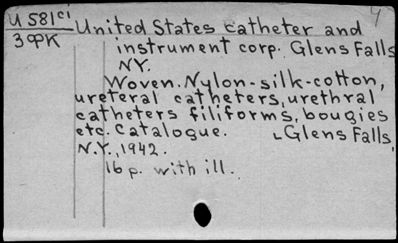 U 581ci
United States catheter and 4
3ФРК
instrument corp. Glens Falls
NY.
Woven. Nylon-silk-cotton,
ureteral catheters, urethral
catheters filiforms, bougies
etc. Catalogue. Glens Falls,
N.Y., 1942.
16 p. with ill.